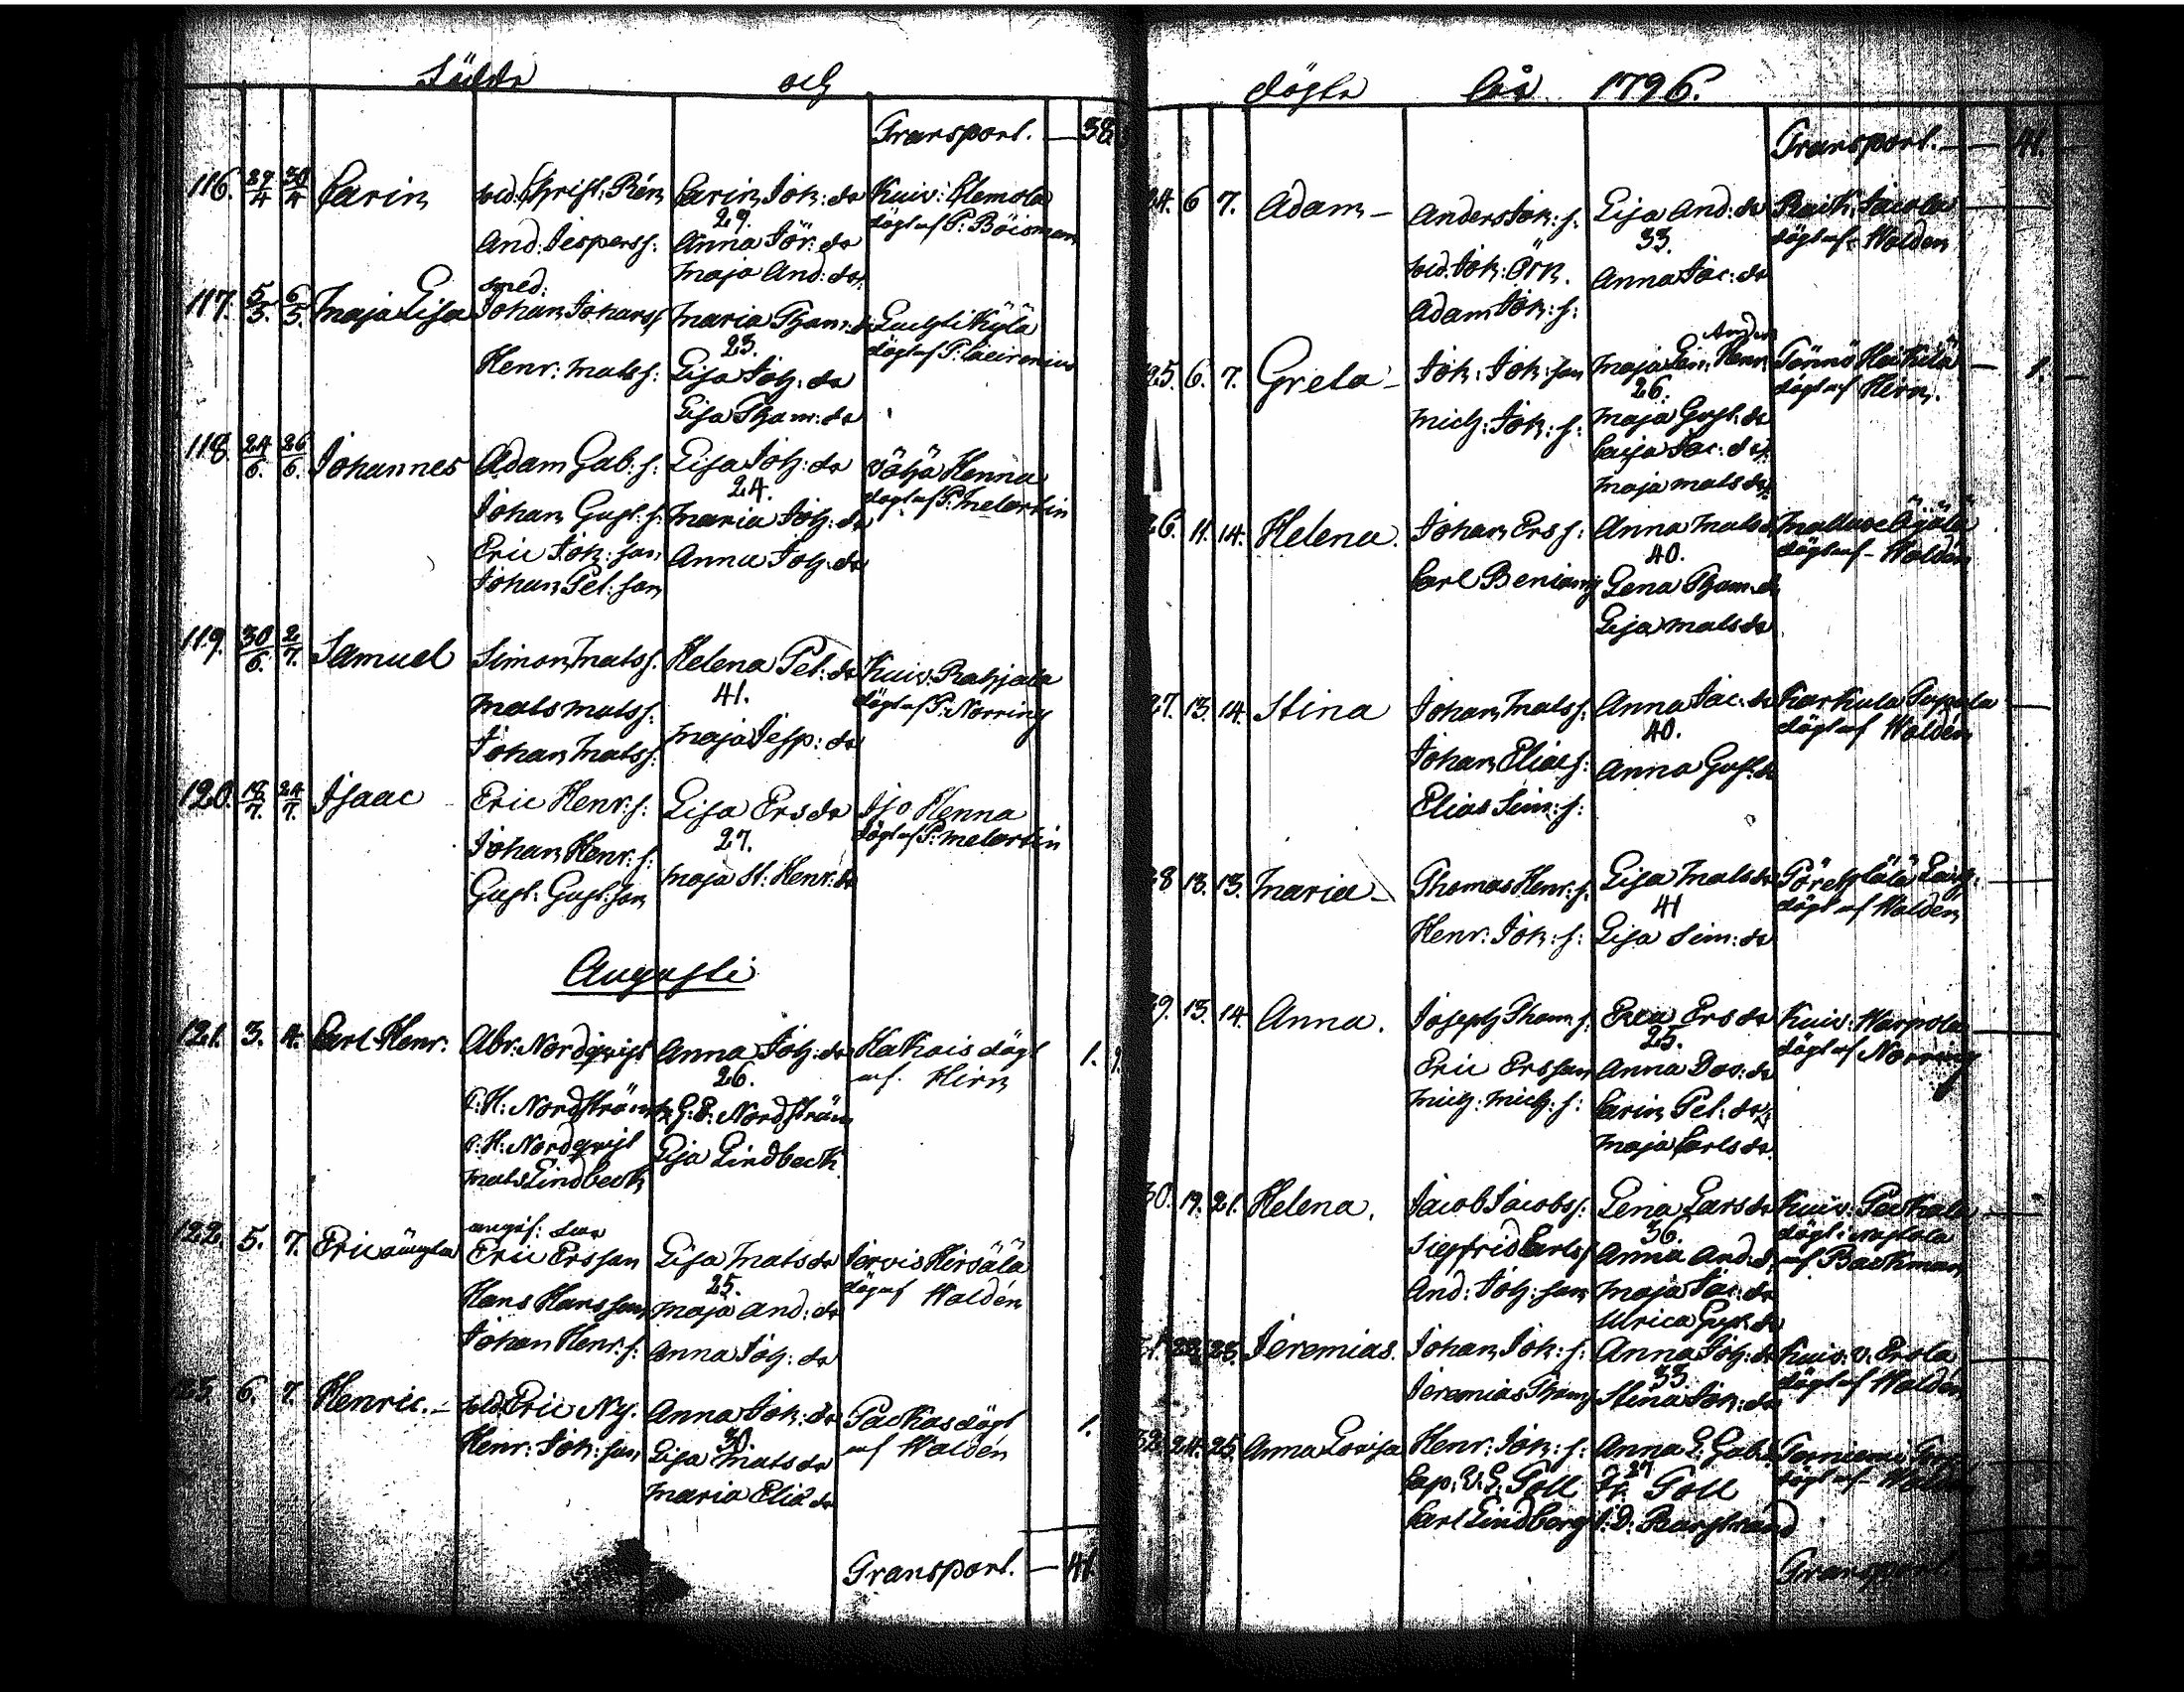 Födde och
Transport. — 38.
116. 29/4 30/4 Carin sold. Christ: Rén Carin Joh: dr Kuiv: Klemola
29. döpt af P: Böisman
And: Jespers s: Anna Jör: dr
Maja And: dr
117. 5/5. 6/5. Maja Lisa smed: Johan Johans s Maria Thom: dr Luchti Kylä
23. döpt af P:
Henr: Mats s: Lisa Joh: dr
Lisa Thom: dr
118. 24/6. 26/6. Johannes Adam Gab: s: Lisa Joh: dr Vähä Henna
24. döpt af P: Melartin
Johan Gust: s: Maria Joh: dr
Eric Joh: son Anna Joh: dr
Johan Pet: son
119. 30/6. 2/7. Samuel Simon Mats s. Helena Pet: dr Kuiv: Rahjala
41. döpt af P: Norring
Mats Mats s: Maja Jesp: dr
Johan Mats s:
120. 18/7. 24/7. Isaac Eric Henr: s: Lisa Ers dr Iso Henna
27. döpt af P: Melartin
Johan Henr: s: Maja St: Henr: dr
Gust: Gust: son
Augusti
121. 3. 4. Carl Henr. Abr: Nordqvist Anna Joh: dr Hakois döpt 1.
26. af. Hirn
C: H: Nordström G: E: Nordström
C: H: Nordqvist Lisa Lindbeck
Mats Lindbeck
122. 5. 7. Eric oäugta angif: far Eric Ersson Lisa Mats dr Jervis Hirvälä
25. döp af Waldén
Hans Hansson Maja And: dr
Johan Henr: s: Anna Joh: dr
123. 6. 7. Henric. — sold Eric Ny. Anna Joh: dr Packas döpt 1.
30. af Waldén
Henr: Joh: son Lisa Mats dr
Maria Elia dr
Transport. — 41.
döpte åå 1796.
Transport. — 41.
24. 6 7. Adam — Anders Joh: s. Lisa And: dr Raik: Jacola
33. döpt af Waldén
sold. Joh: Örn. Anna Jac: dr
Adam Joh: s:
25. 6. 7. Greta — Joh: Joh: son Maja Anders Tönnö Heikkilä — 1.
26. döpt af Hirn.
Mich: Joh: s: Maja Gust: dr
Caisa Jac: dr
Maja Mats dr
26. 11. 14. Helena. Johan Ers s: Anna Mats dr Mallusc Äijälä
40. döpt af Waldén
Carl Beniam s Lena Thom: dr
Lisa Mats dr
27. 13. 14. Stina Johan Mats s: Anna Jac: dr Karkula
40. döpt af Waldén
Johan Elias s: Anna Gust: dr
Elias Sim: s:
28 13. 13. Maria — Thomas Henr: s: Lisa Mats dr
41 döpt af Waldén
Henr: Joh: s: Lisa Sim: dr
29. 13. 14. Anna. Joseph Thom s. Eva Ers dr Kuiv: Warpola
25. döpt af Norring
Eric Ersson Anna Dav: dr
Mich: Mich: s: Carin Pet: dr
Maja Carls dr
30. 19. 21. Helena. Jacob Jacobs s: Lena Lars dr Kuiv: Packala
36. döpt i
Siegfrid Carls s Anna And: d af Backman
And: Joh: son Maja Jac: dr
Ulrica Gust: dr
31. 22. 23. Jeremias. Johan Joh: s: Anna Joh: dr Kuiv: v. Erola
33 döpt af Waldén
Jeremias Thom s Stina Joh: dr
32. 24. 25. Anna Lovisa Henr: Joh: s: Anna L: Gab: Torniemi
27 döpt af Waldén
Cap: V: G: Toll Fr. Toll
Carl Lindberg C: D: Bargstrand
Transport